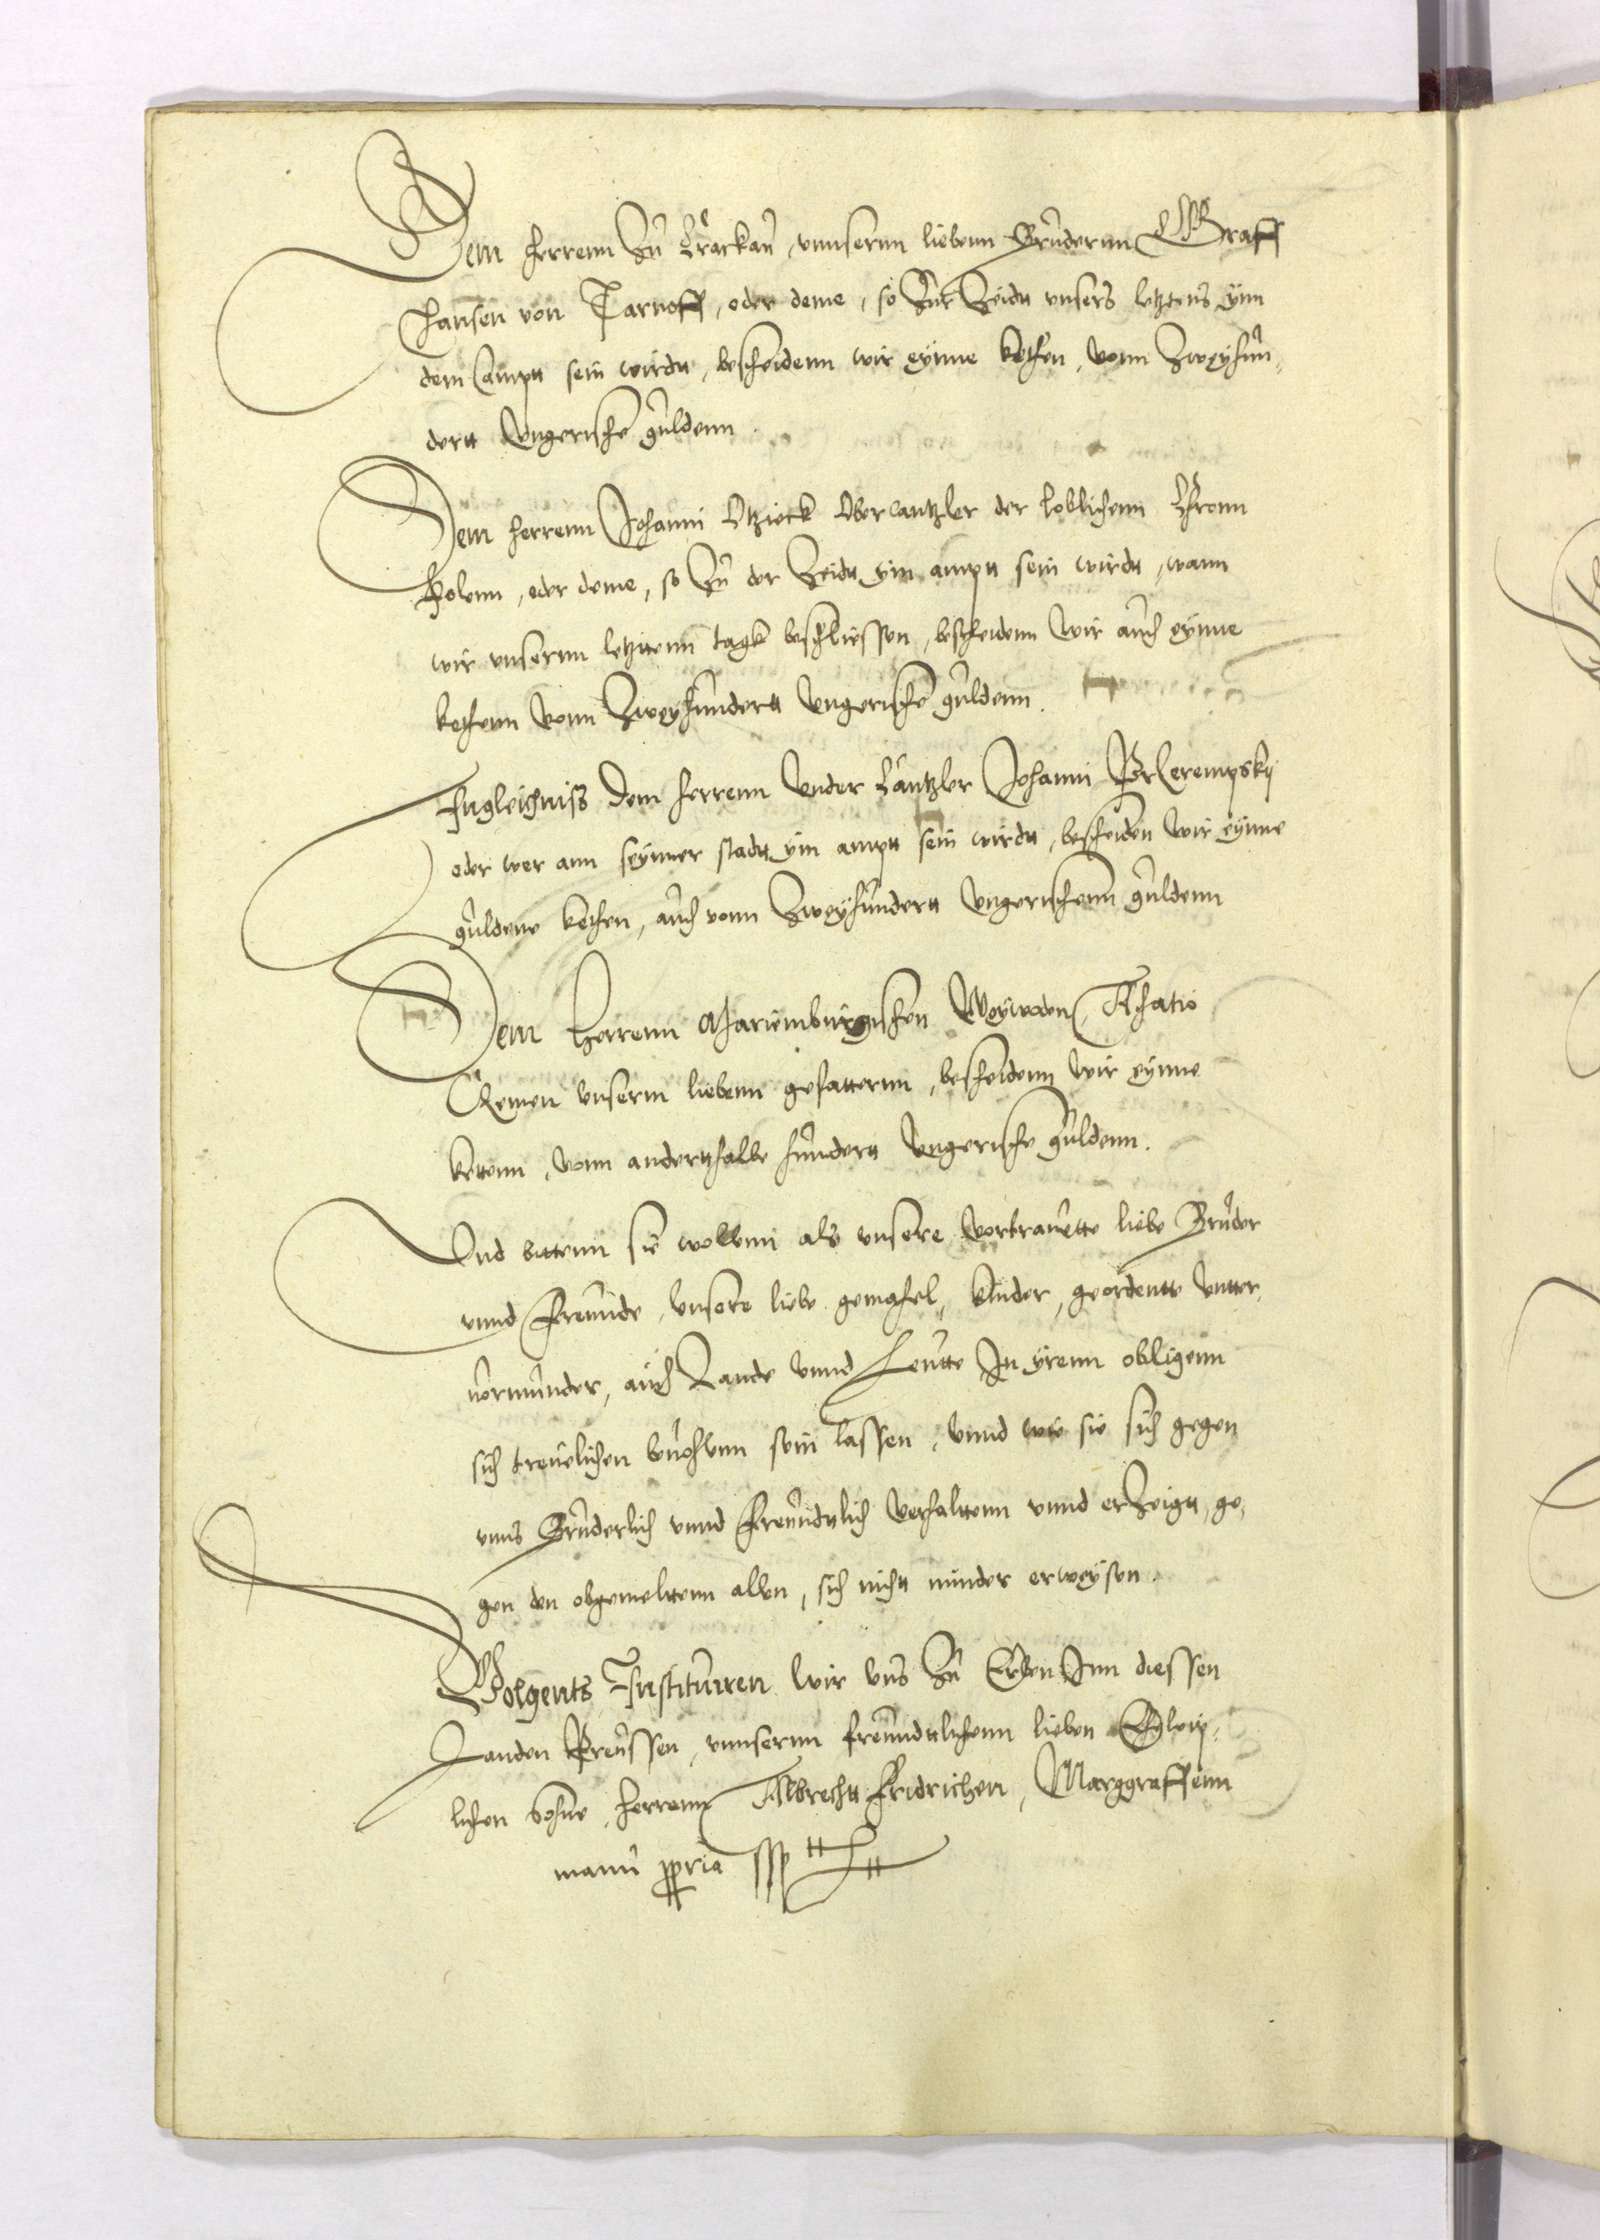 Dem herrenn Zu Crackau, unnsernn liebenn Brudernn Graff
Hansen von Tarnoff, oder deme, so Zur Zeidtt unsers letztens ynn
dem ampt sein wirdtt, bescheidenn wir eynne kethen, vonn Zweyhun-
dertt Ungerische guldenn
Dem herrenn Johanni Otzieck Obercantzler der loblichenn Chronn
Polenn, oder deme, so Zu der Zeidtt ym ampt sein wirdtt, wann
wir unsernn letzttenn tagk beschliessen, bescheidenn wir auch eynne
kethenn vonn Zweyhundertt Ungerische guldenn.
Inngleichniss dem herrenn Under Cantzler Johanni Przerempsky
oder wer ann seynner stadtt ym ampt sein wirdtt, bescheiden wir eynne
guldene kethen, auch vonn Zweyhundertt Ungerischenn guldenn
Dem Herrenn Marienburgischen Weywoden Achatio
Czemen unserm liebenn gefatternn, bescheidenn wir eynne
kettenn, vonn anderthalbe hundertt Ungerische guldenn.
Und bittenn sie wollenn als unsere vortrauette liebe Bruder
unnd Freunde, unsere liebe gemahel, kinder, geordentte untter-
vormunder, auch Lande unnd Leutte In yrenn obligenn
sich treulichen bevohlenn sein lassen, unnd wie sie sich gegen
unns Bruderlich unnd Freundtlich verhalttenn unnd erZeigtt, ge-
gen den obgemelttenn allen, sich nicht minder erweysen.
Volgents Instituiren wir uns Zu Erben Inn diessen
Landen Preussen, unnsernn freundtlichenn lieben Eheley-
lichen Sohne, herrenn Albrecht Fridrichen, Marggraffenn
manu ppria ssp